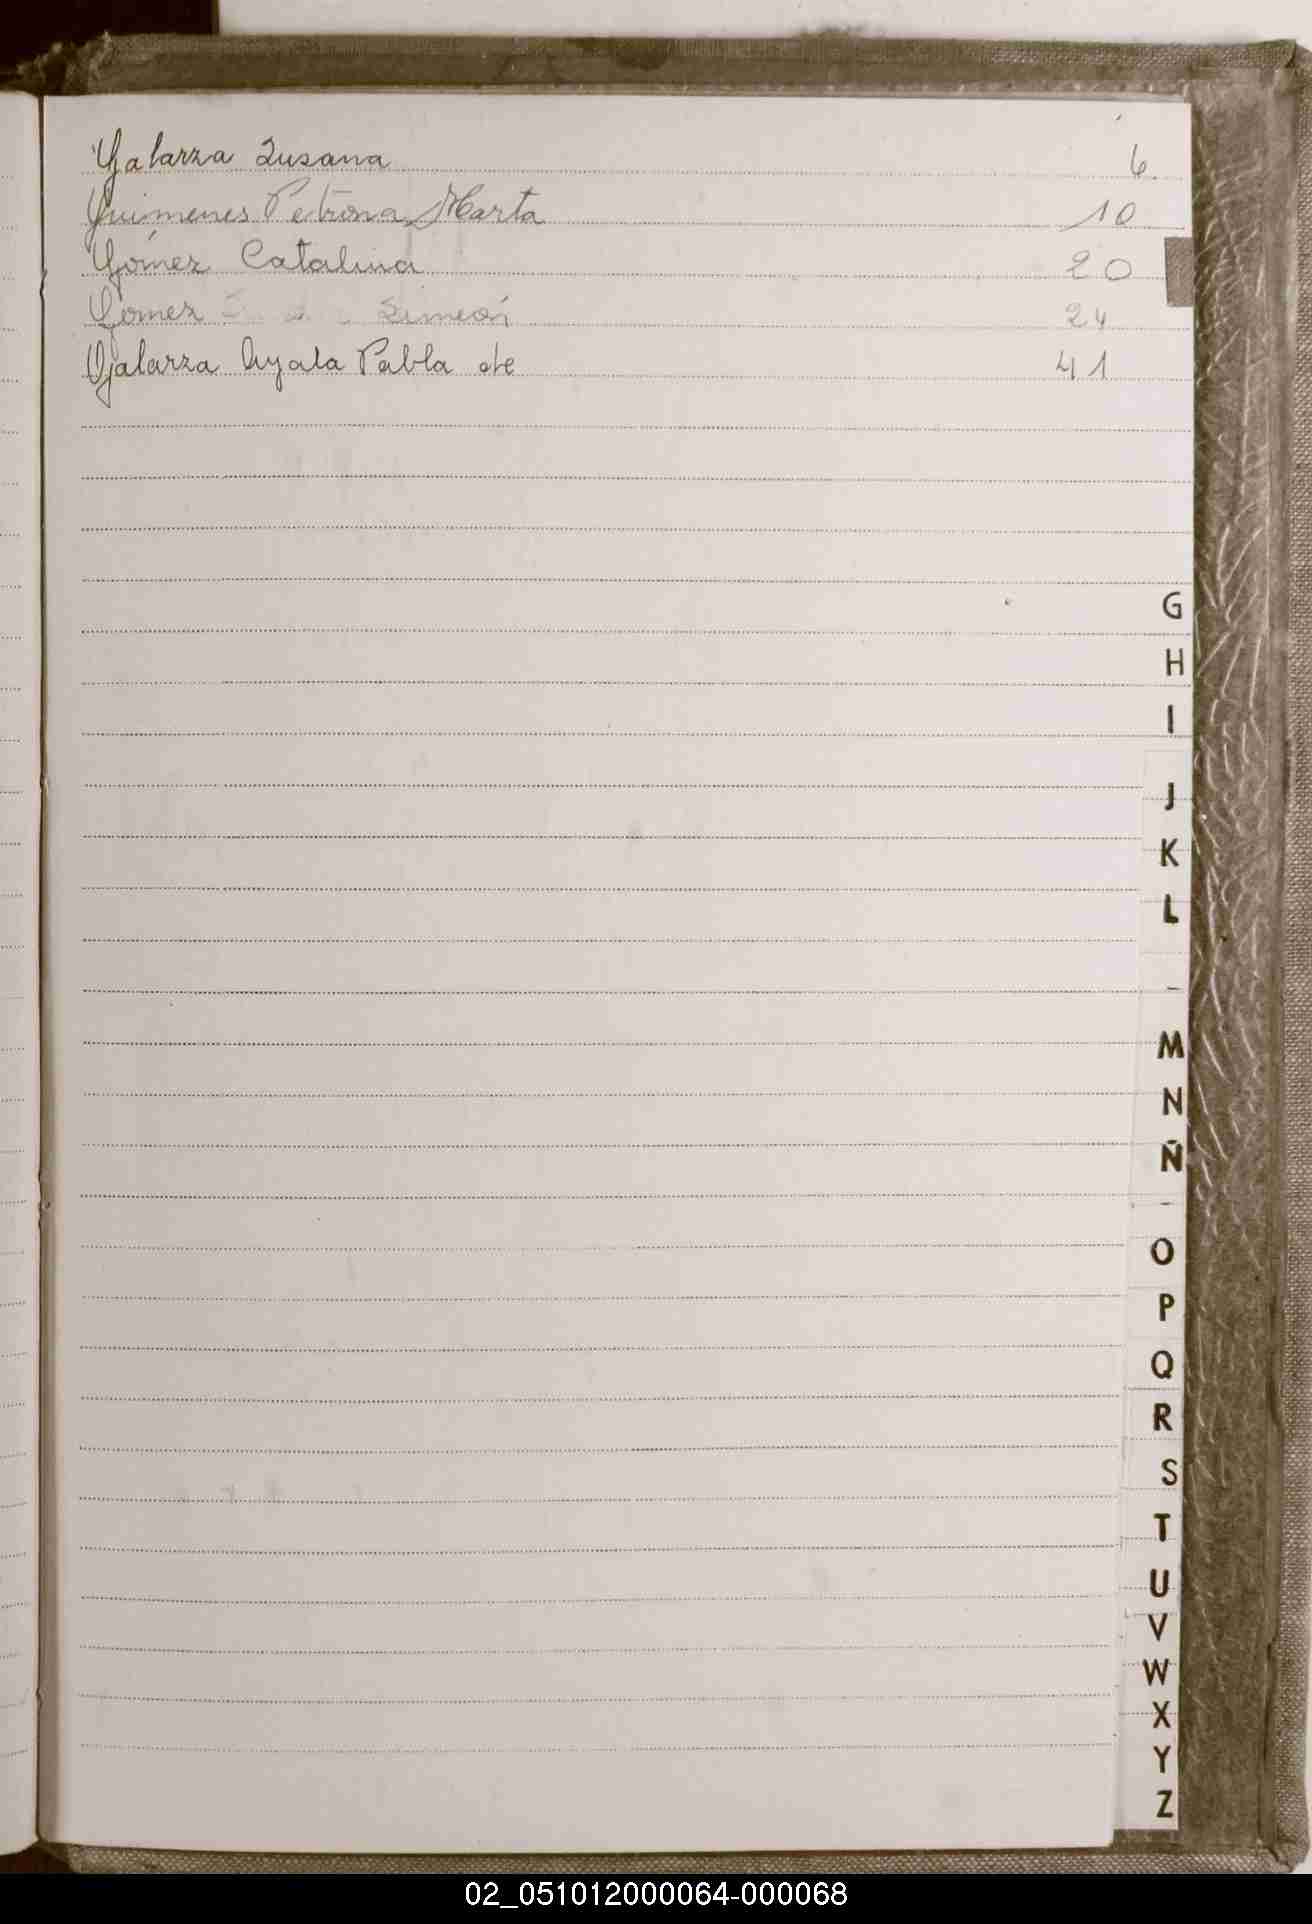 Galarza Susana 6
Guimenes Petrona Marta 10
Gómez Catalina 20
Gomez Simeón 24
Galarza Ayala Pabla de 41
G
H
I
J
K
L
M
N
Ñ
O
P
Q
R
S
T
U
V
W
X
Y
Z
02_051012000064-000068